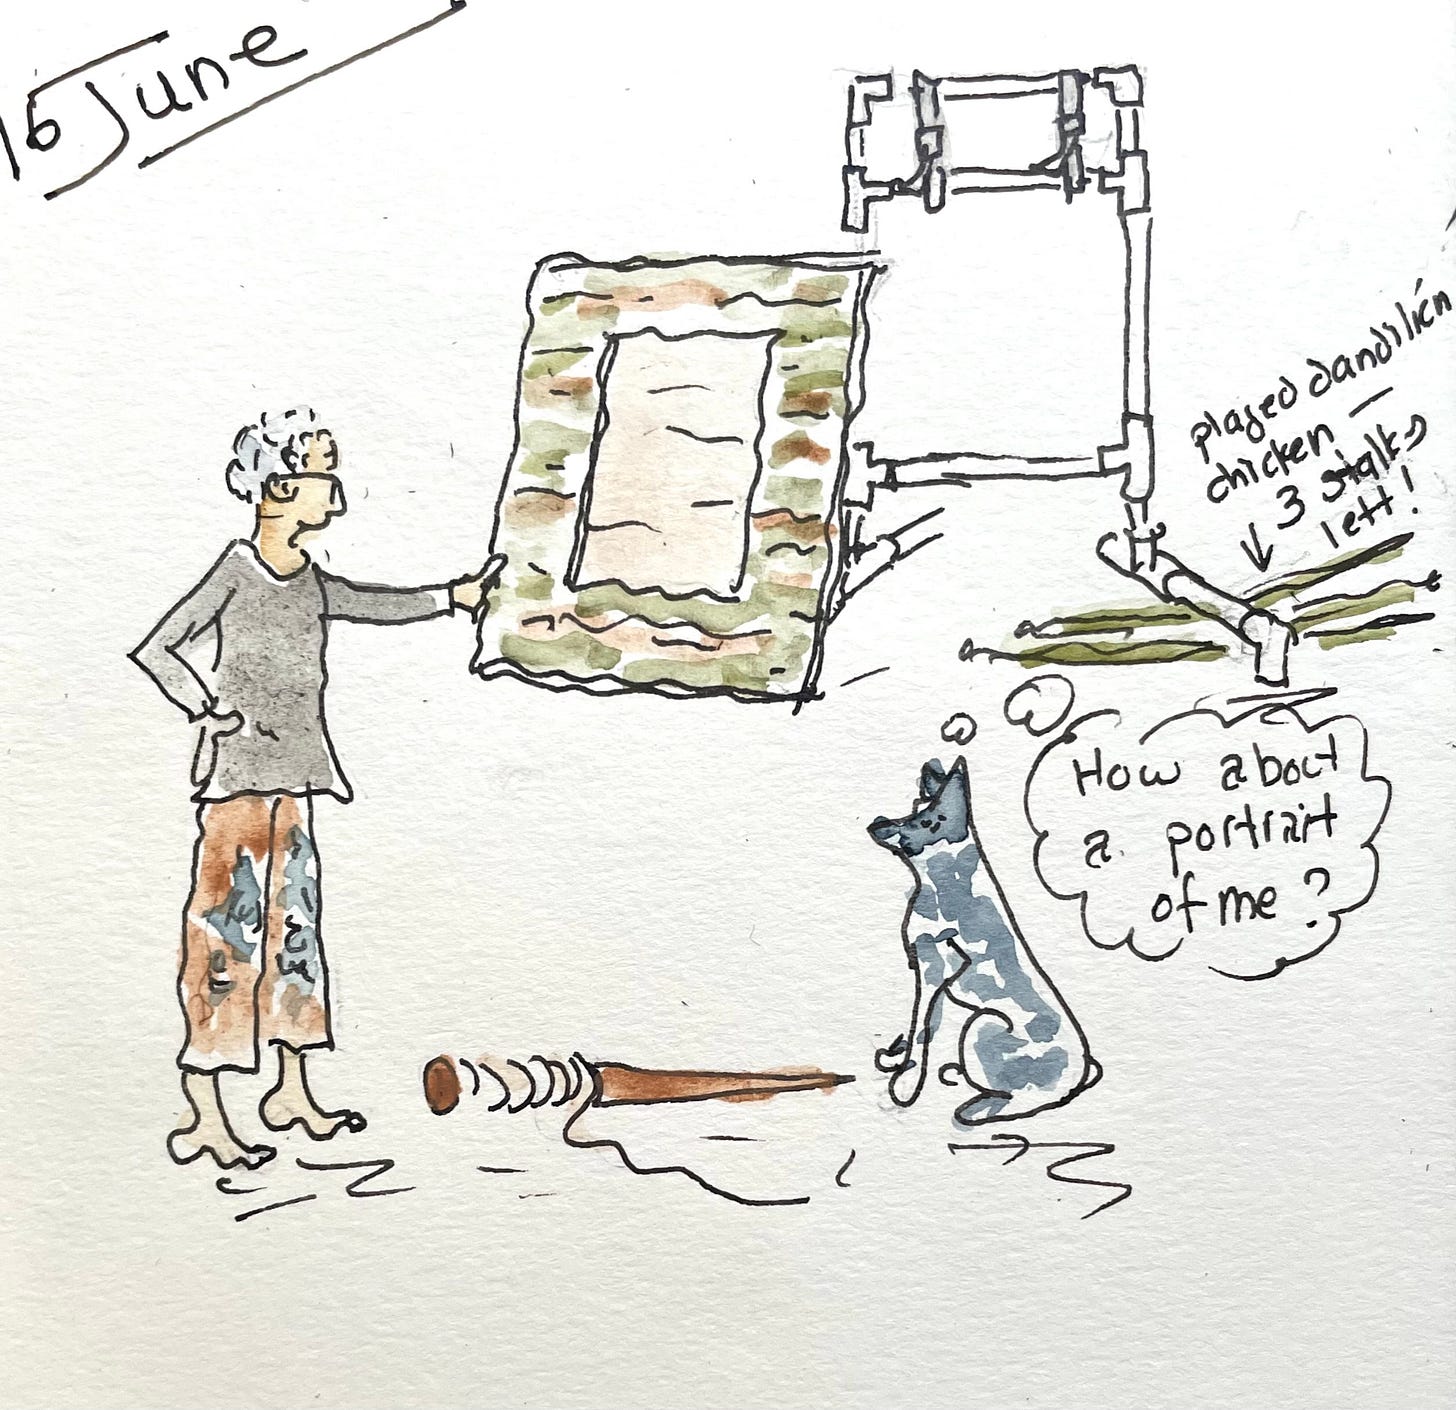 16 June
played dandilién
chicken —
3 stalks
left!
How about
a portrait
of me?